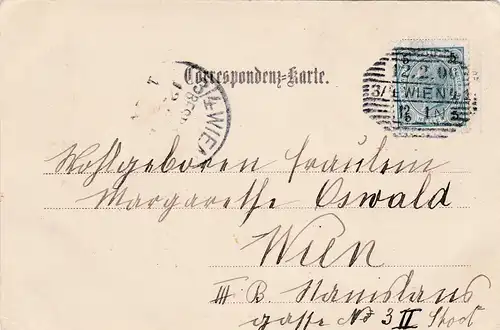 Correspondenz-Karte.
5 5
12 2.00
3/4 WIEN
3/4 WIE
Wohlgeboren Fräulein
Margarethe Oswald
Wien
III B. Stanislaus
gasse No 3 II Stock